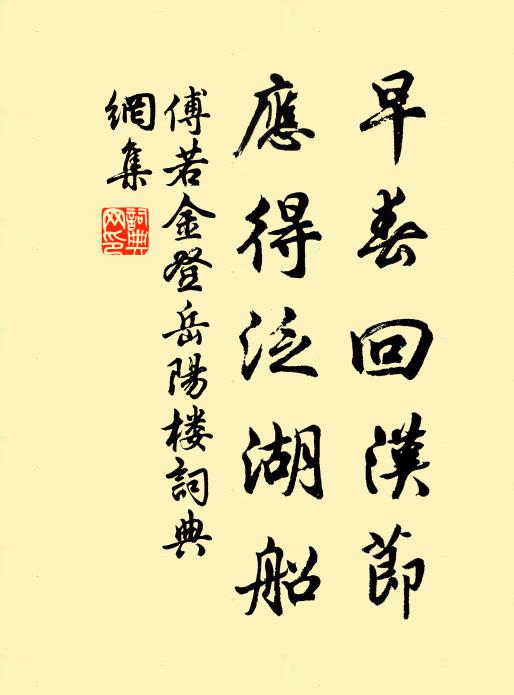 早春回漢節
應得泛湖船
傅若金登岳陽楼詞典
網集
詞典網印